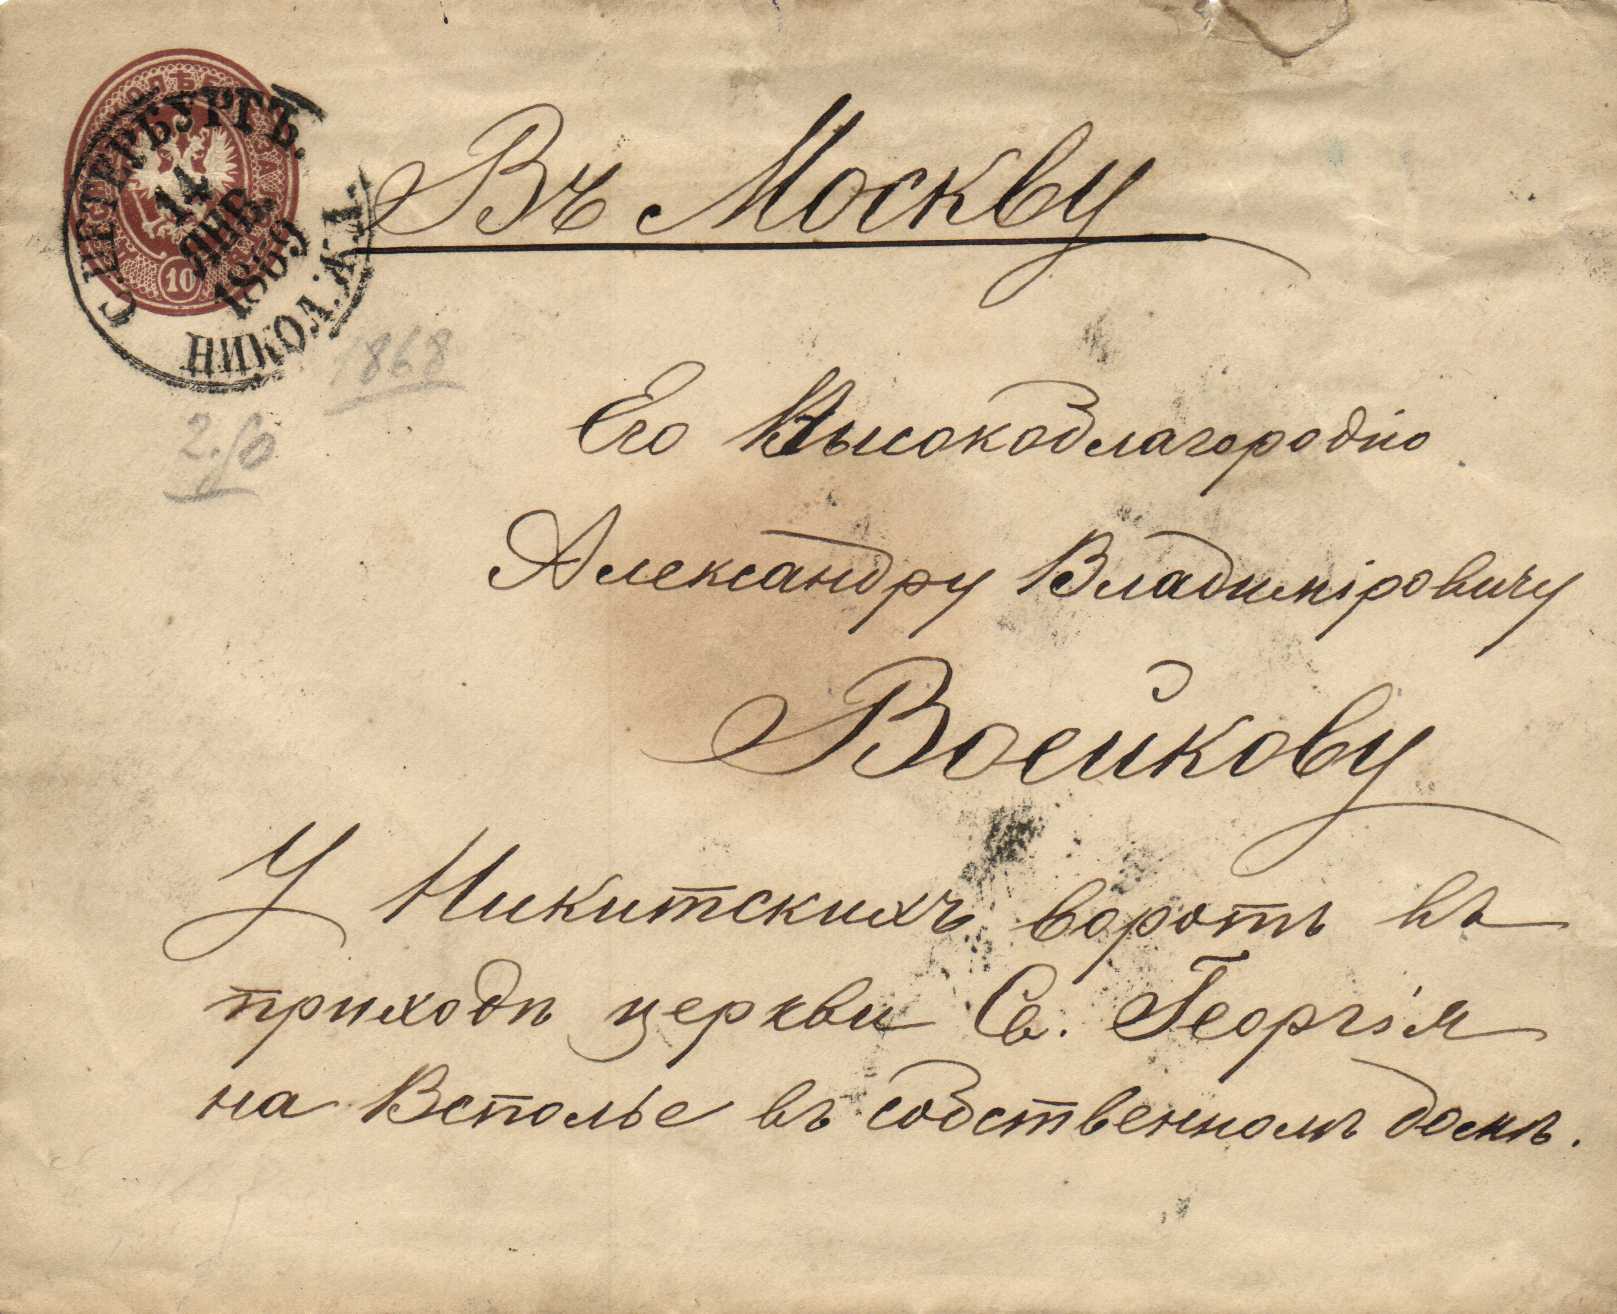 С. ПЕТЕРБУРГЪ.
14
ЯНВ.
1869
НИКОЛ. Ж.Д.
10
Въ Москву
1868
2.50
Его Высокоблагородію
Александру Владиміровичу
Воейкову
У Никитскихъ воротъ въ
приходѣ церкви Св. Георгія
на Вспольѣ въ собственномъ домѣ.